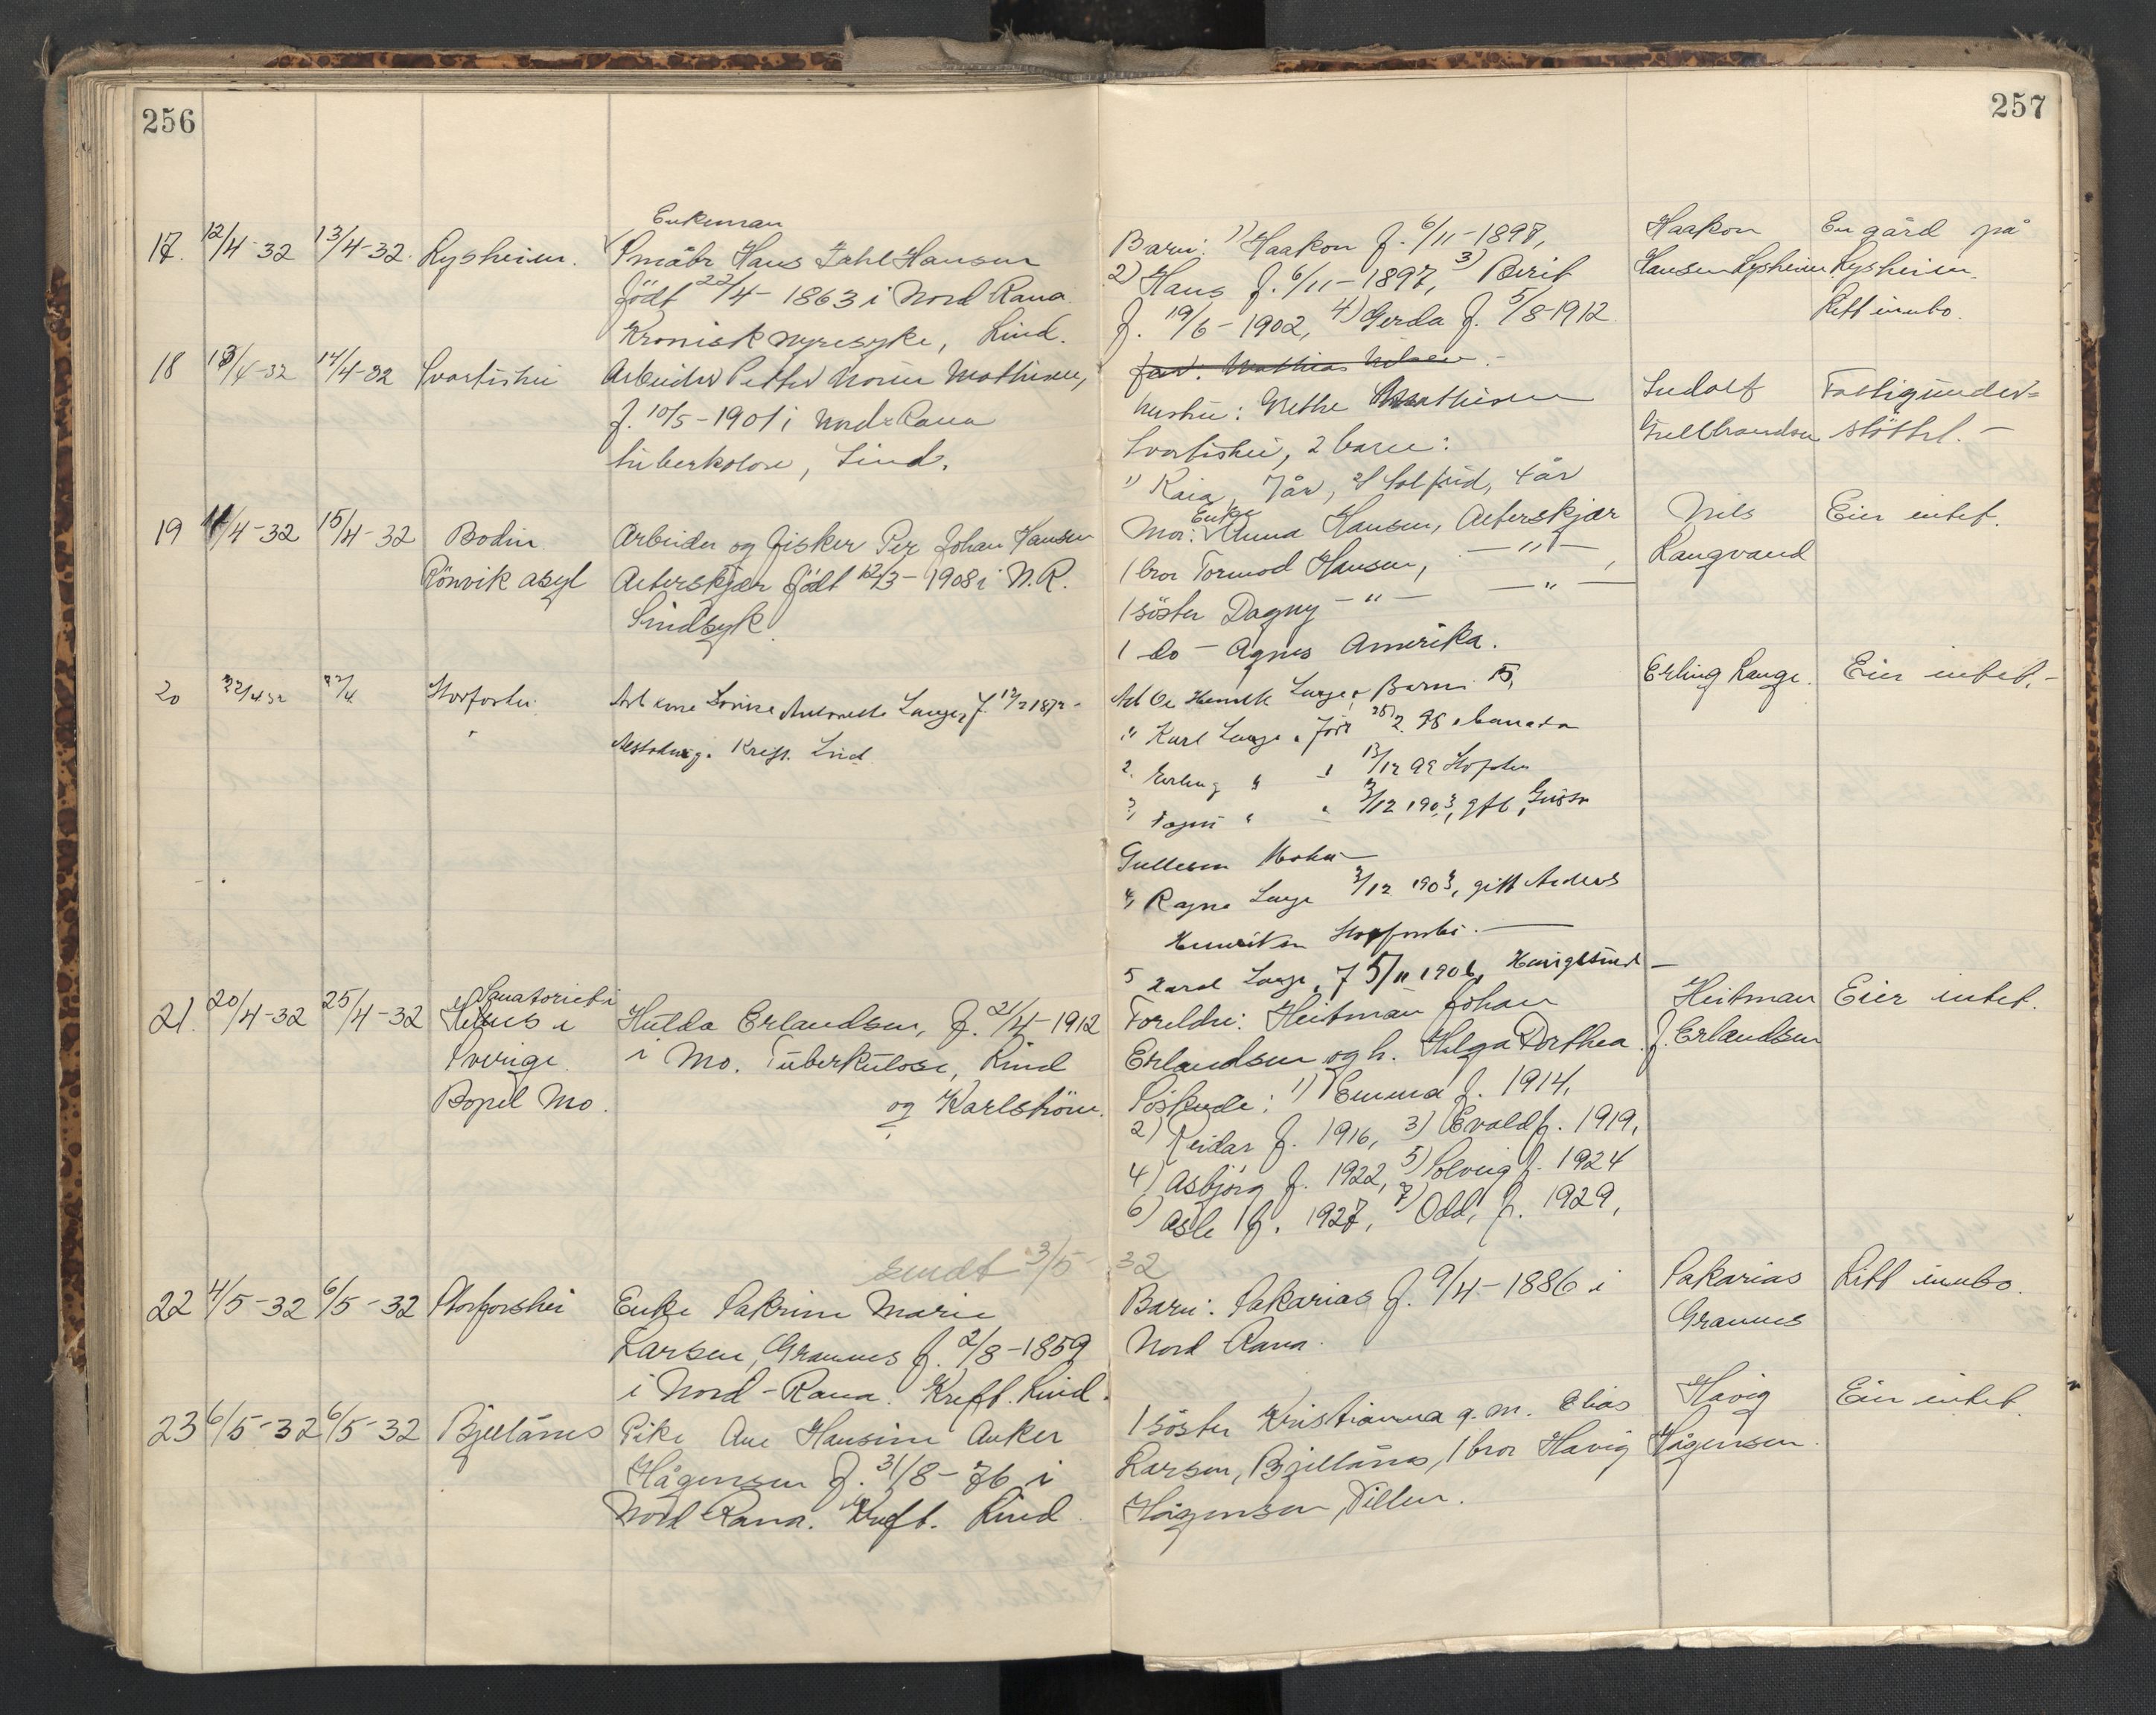 256
257
Enkeman
17. 12/4-32 13/4-32. Lysheim. Småbr Hans Dahl Hansen
født 22/4-1863 i Nord Rana.
Kronisk nyresyke, Lind.
Barn: 1) Haakon f. 6/11-1897,
2) Hans f. 6/11-1897, 3) Berit
f. 19/6-1902, 4) Gerda f. 5/8-1912
Haakon
Hansen Lysheim
En gård på
Lysheim.
Litt innbo.
18 13/4-32 14/4-32 Svartishei Arbeider Petter Norum Mathisen,
f. 10/5-1901 i Nord-Rana
tuberkolose, Lind.
far: Mathias Nilsen -
hustru: Grethe Mathisen
Svartishei, 2 barn:
1) Raia, 7 år, 2) Solfrid, 4 år
Ludolf
Gullbrandsen
Fattigunder-
støttet. -
19 11/4-32 15/4-32 Bodin
Rönvik asyl
Arbeider og fisker Per Johan Hansen
Aeterskjær født 12/3-1908 i N.R.
Sindsyk.
Enke
Mor: Anna Hansen, Aeterskjær
1 bror Tormod Hansen, - " - ,
1 søster Dagny - " - - " -
1 do - Agnes Amerika.
Nils
Langvand
Eier intet.
20 22/4 32 22/4 Storforshei.
Arb kone Lovise Antonette Lange f. 12/2 1872 -
Kreft. Lind
Arb Ole Henrik Lange, Barn 5,
1) Karl Lange, født 25/2 98 Canada
2. Erling " " 13/12 99 Storforshei
3, Dagni " " 3/12 1903, gift, Gusta
Gullesen Moheia -
4, Ragna Lange 3/12 1903, gift Anders
Henriksen Storforshei. -
5 Harald Lange, f 5/11 1906, Haugesund -
Erling Lange.
Eier intet. -
21. 20/4-32 25/4-32 Sanatoriet i
Sverige.
Bopel Mo.
Hulda Erlandsen, f. 21/4-1912
i Mo. Tuberkulose, Lind
og Karlstrøm.
Foreldre: Heitman Johan
Erlandsen og h. Helga Dorthea
Søskende: 1) Emma f. 1914,
2) Reidar f. 1916, 3) Evald f. 1919,
4) Asbjörg f. 1922, 5) Solveig f. 1924
6) Asle f. 1927, 7) Odd, f. 1929,
Heitman
J. Erlandsen
Eier intet.
sendt 3/5-32
22 4/5-32 6/5-32 Storforshei Enke Sakrine Marie
Larsen, Grannes f. 2/8-1859
i Nord-Rana. Kreft. Lind.
Barn: Sakarias f. 9/4-1886 i
Nord Rana.
Sakarias
Grannes
Litt innbo.
23 6/5-32 6/5-32 Bjellånes Pike Ane Hansine Anker
Hågensen f. 31/8-76 i
Nord Rana. Kreft. Lind
1 søster Kristianna g.m. Elias
Larsen, Bjellånes, 1 bror Havig
Hågensen, Tillen.
Havig
Hågensen.
Eier intet.